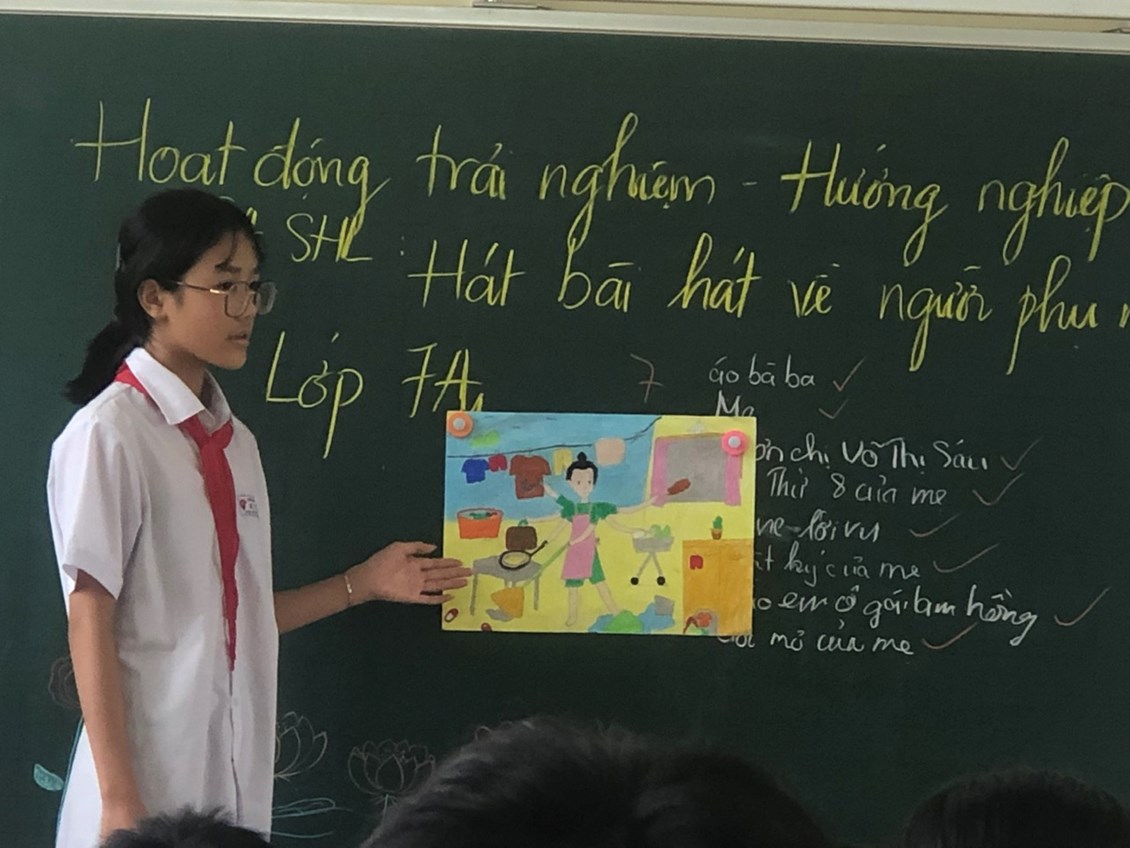 Hoạt động trải nghiệm - Hướng nghiệp
SHL :
Hát bài hát về người phụ
Lớp 7A
7
áo bà ba
Mẹ
chị Võ Thị Sáu
Thứ 8 của mẹ
lời ru
ký của mẹ
em cô gái lam hồng
mơ của mẹ